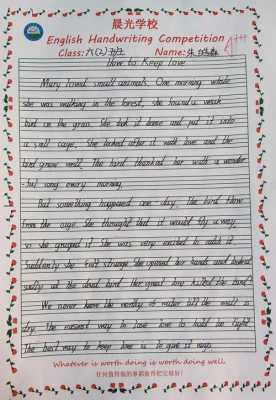 晨光学校
English Handwriting Competition
Class: 六(2)班 Name: 朱
How to Keep love
Mary loved small animals. One morning while
she was walking in the forest, she found a weak
bird on the grass. She took it home and put it into
a small cage. She looked after it with love and the
bird grew well. The bird thanked her with a wonder
-ful song every morning.
But something happened one day. The bird flew
from the cage. She thought that it would fly away,
so she grasped it. She was very excited to catch it.
Suddenly she felt strange. She opened her hands and looked
sadly at the dead bird. Her great love killed the bird!
We never know the worthy of water till the well is
dry. The easiest way to lose love is hold on tight.
The best way to keep love is to give it wings.
Whatever is worth doing is worth doing well.
任何值得做的事就值得把它做好!